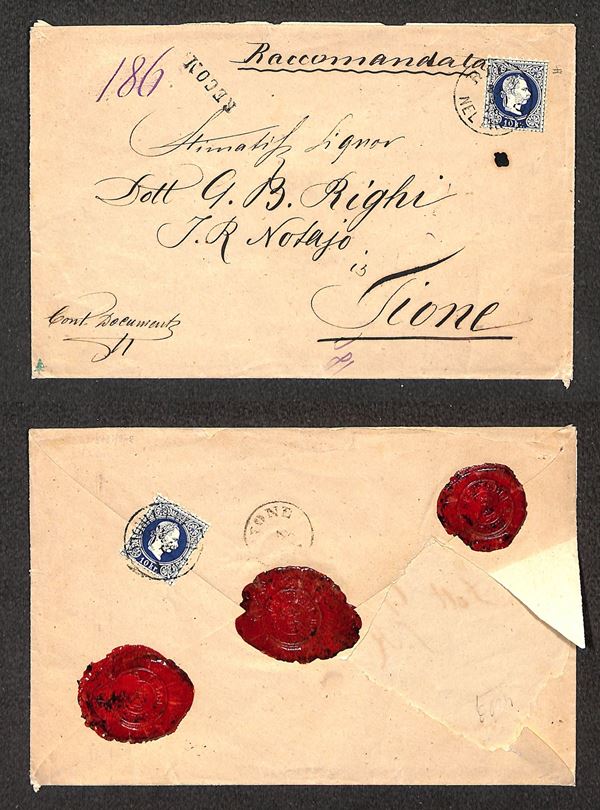 186
RECOM.
Raccomandata
10 kr.
Stimatiss Signor
Dott G. B. Righi
I. R Notajo
in
Tione
Cont. Documenti
10 kr.
TIONE